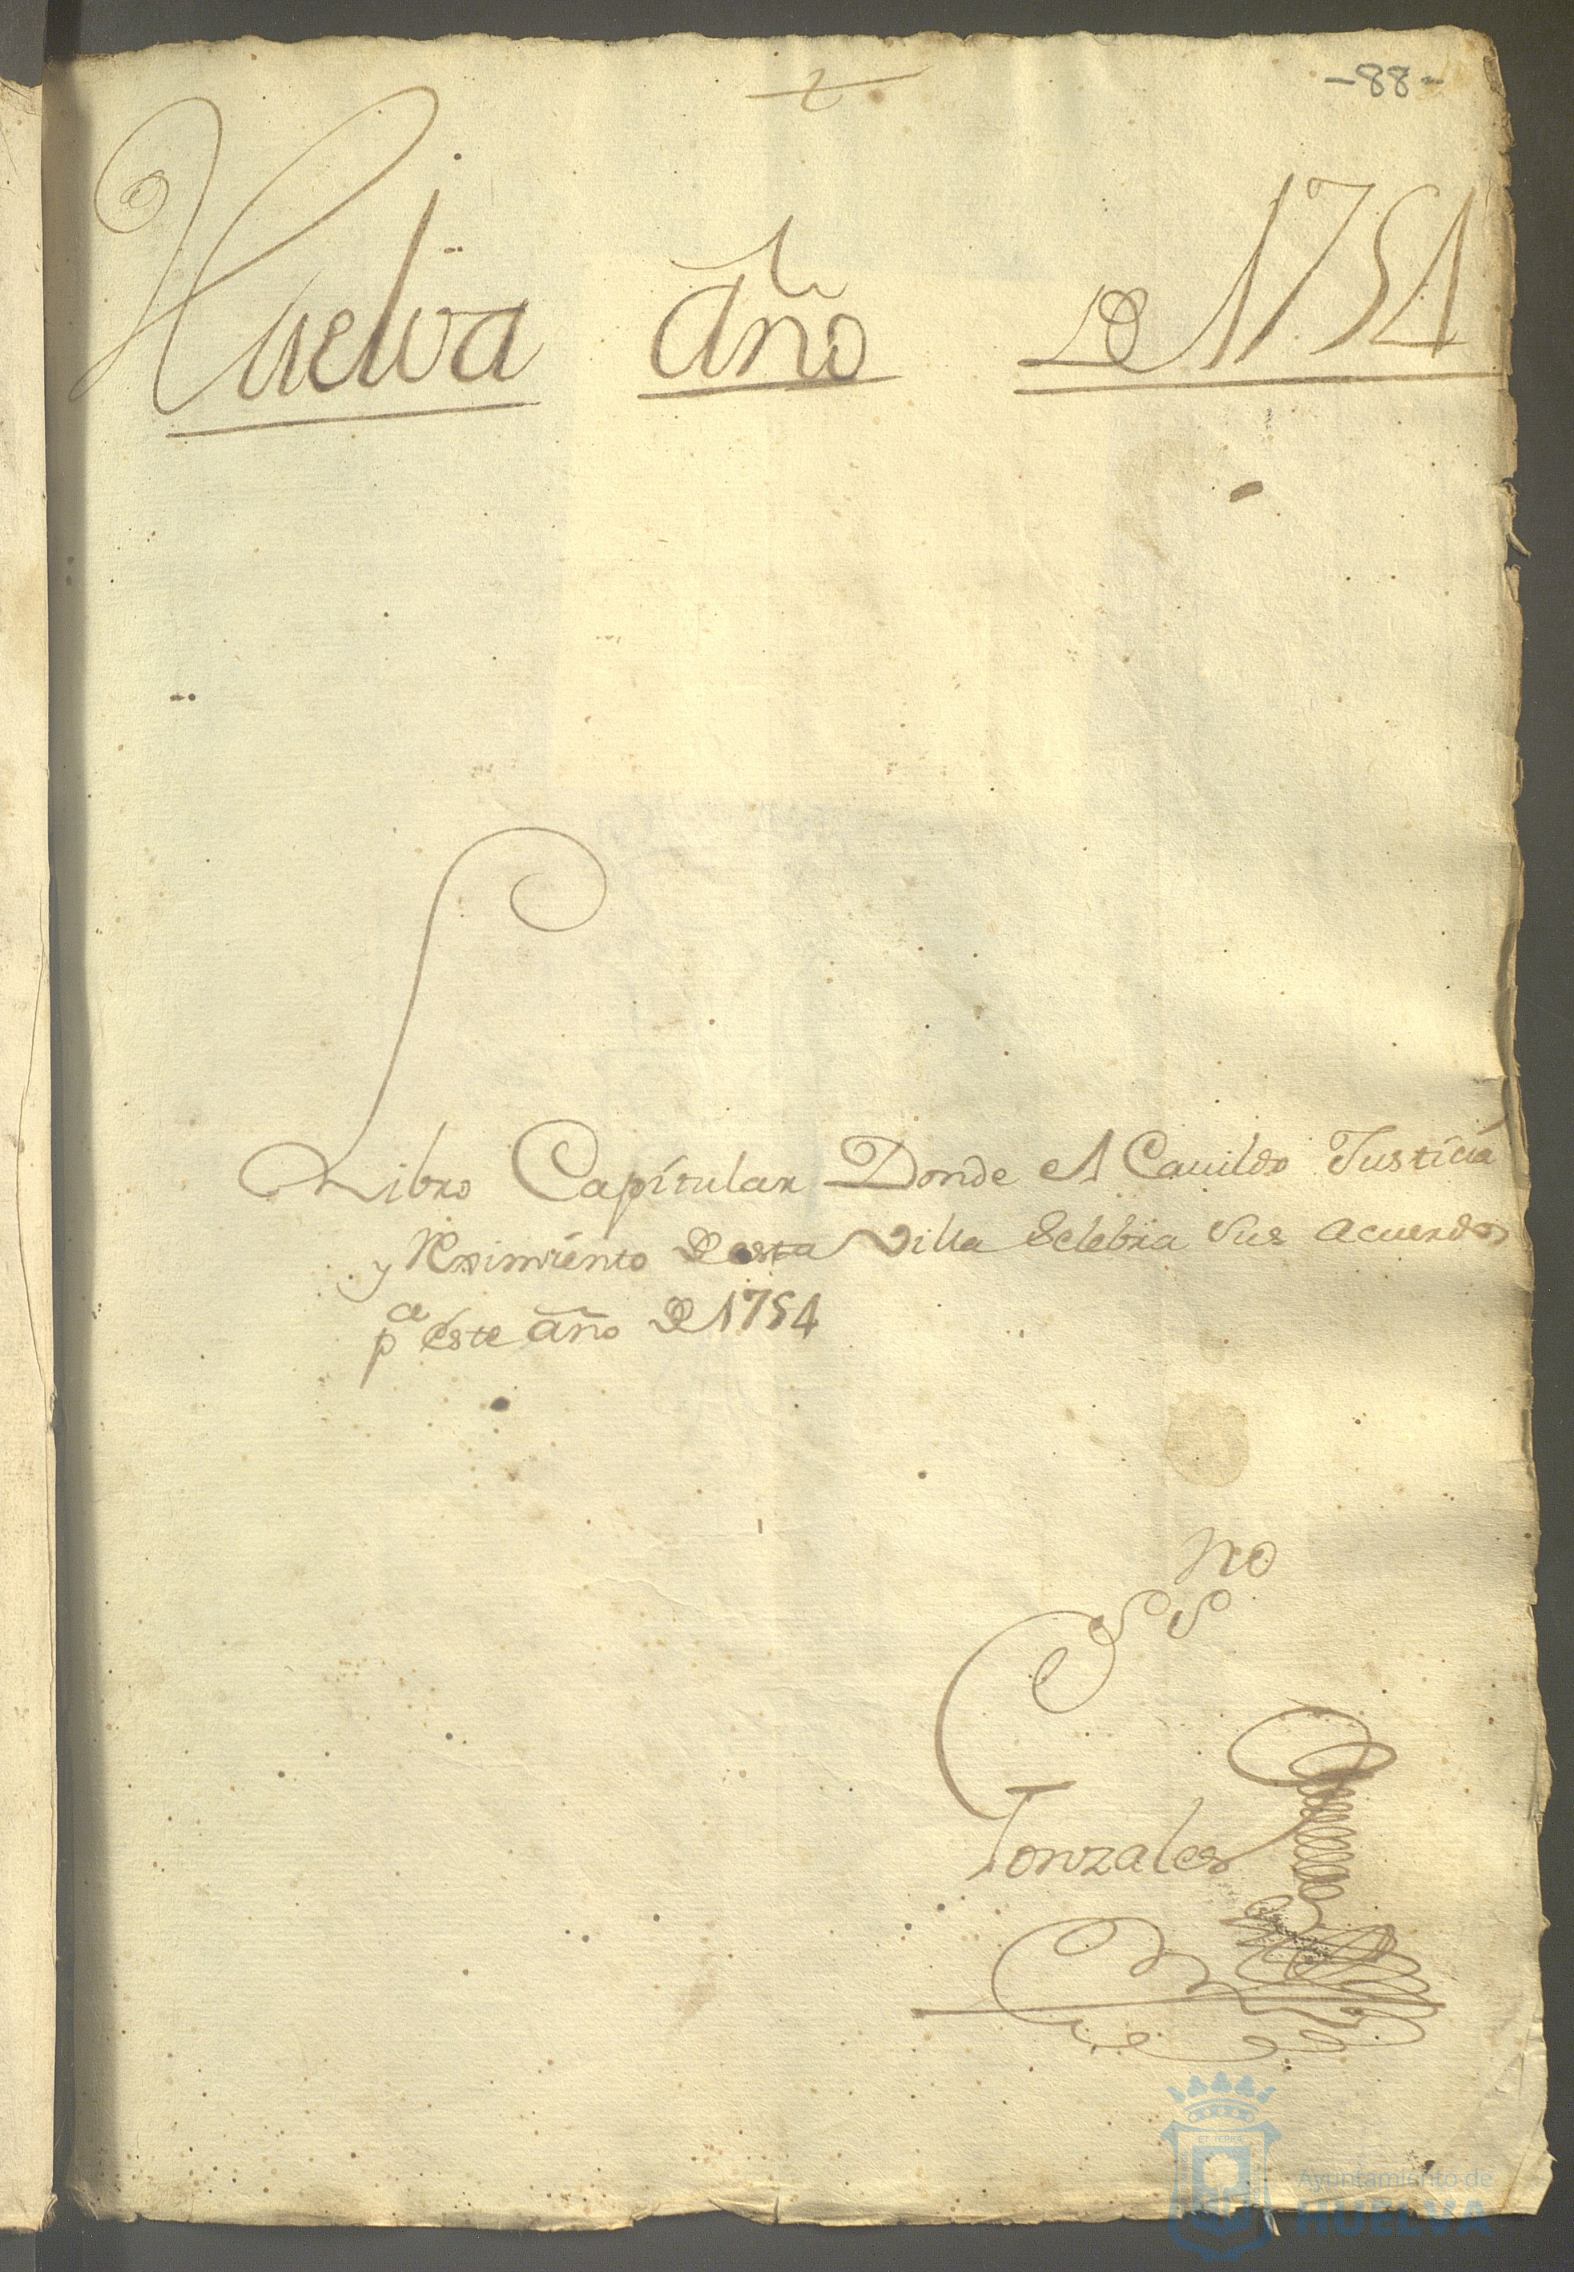 -88-
Huelva año de 1754
Libro Capitular Donde el Cavildo Justicia
y Reximiento de esta Villa Selebra Sus acuerdos
pa este año de 1754
no
SS
Gonzales
Ayuntamiento de
HUELVA